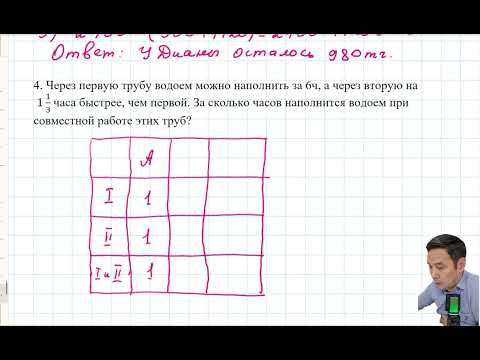 Ответ: У Дианы осталось 980тг.
4. Через первую трубу водоем можно наполнить за 6ч, а через вторую на
1 1/3 часа быстрее, чем первой. За сколько часов наполнится водоем при
совместной работе этих труб?
A
I 1
II 1
I и II 1